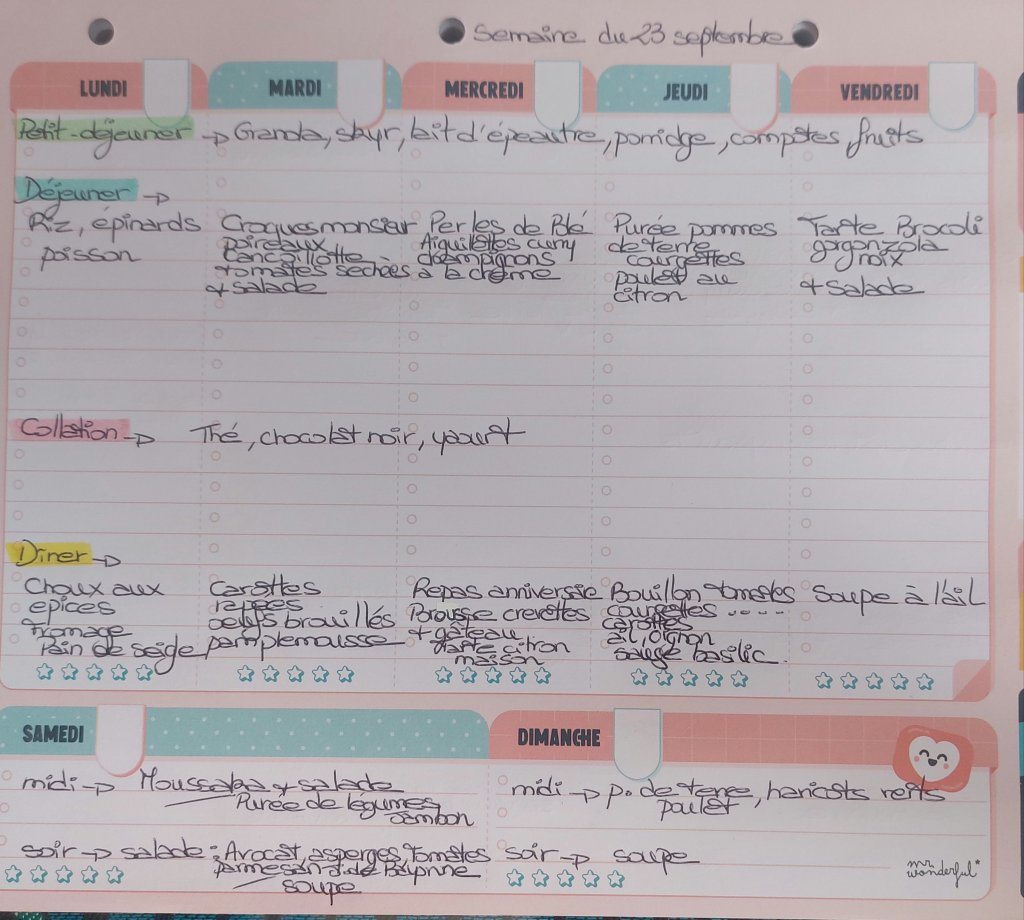 Semaine du 23 septembre
LUNDI
MARDI
MERCREDI
JEUDI
VENDREDI
Petit-déjeuner → Granola, skyr, lait d'épeautre, porridge, compotes, fruits
Déjeuner →
Riz, épinards
poisson
Croquesmonsieur
poireaux
cancoillotte
tomates sechées
+ salade
Perles de Blé
Aiguilettes curry
champignons
à la crème
Purée pommes
de terre
courgettes
poulet au
citron
Tarte Brocoli
gorgonzola
noix
+ salade
Collation → Thé, chocolat noir, yaourt
Dîner →
Choux aux
epices
fromage
Pain de seigle
Carottes
rapées
oeufs brouillés
pamplemousse
Repas anniversaire
Brousse crevettes
+ gâteau
tarte citron
maison
Bouillon tomates
courgettes ....
carottes
ail, oignon
sauge basilic.
Soupe à l'ail
SAMEDI
midi → Moussaka + salade
Purée de légumes
Jambon
soir → salade : Avocat, asperges, tomates
parmesan J. de Bayonne
soupe
DIMANCHE
midi → p. de terre, haricots verts
poulet
soir → soupe
mr. wonderful*